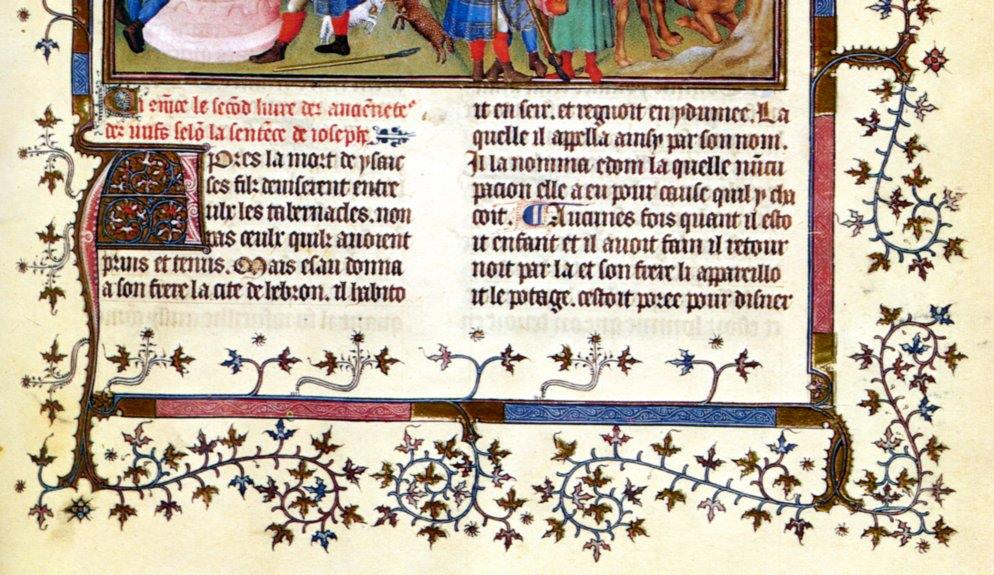 Ci cōmēce le secōd livre des anciēnetes
des iuifs selō la sentēce de iosephe
Apres la mort de ysaac
ses filz deuiserent entre
eulx les tabernacles. non
pas ceulx quilz auoient
prins et tenus. Mais esau donna
a son frere la cite de lebron. il habito
it en seir. et regnoit en ydumee. La
quelle il apella ainsy par son nom.
Il la nomma edom la quelle nūcu
pacion elle a eu pour cause quil y cha
coit. Aucunes fois quant il esto
it enfant et il auoit fain il retour
noit par la et son frere li appareillo
it le potage. cestoit poree pour disner